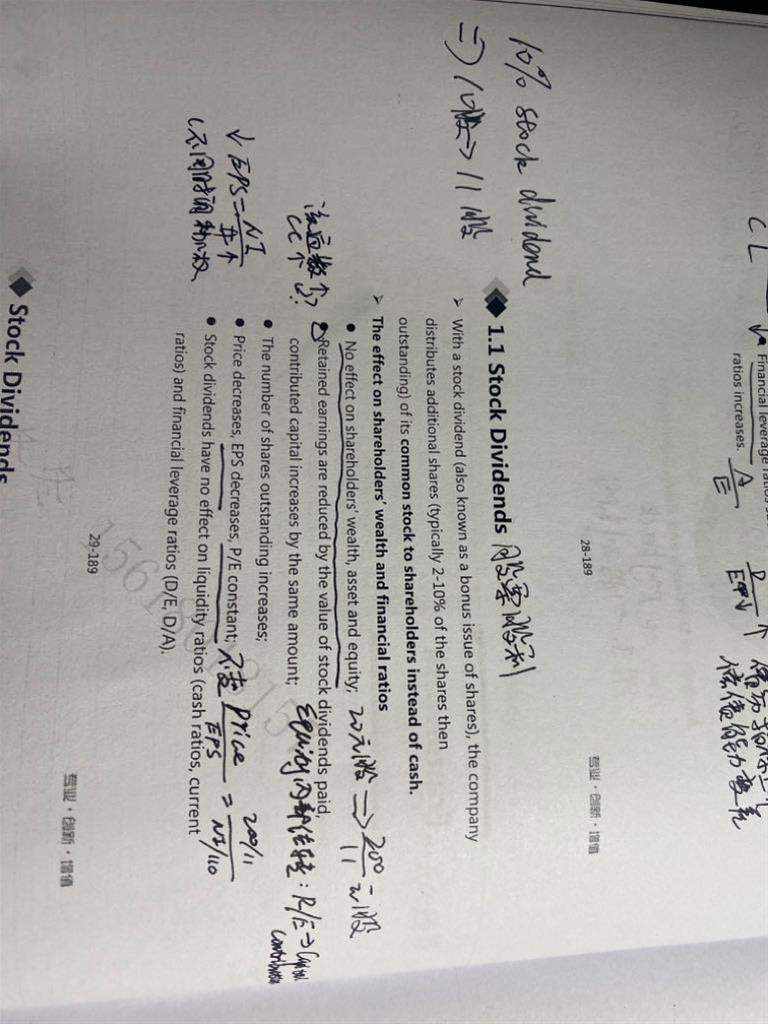 CL
Financial leverage ratios
ratios increases.
A
E
D
E
28-189
专业·创新·增值
10% stock dividend
=> 10股 -> 11股
1.1 Stock Dividends 股票股利
With a stock dividend (also known as a bonus issue of shares), the company
distributes additional shares (typically 2-10% of the shares then
outstanding) of its common stock to shareholders instead of cash.
The effect on shareholders' wealth and financial ratios
No effect on shareholders' wealth, asset and equity; 20元/股 => 200/11 元/股
Retained earnings are reduced by the value of stock dividends paid,
contributed capital increases by the same amount; Equity内部结转: R/E -> Capital
The number of shares outstanding increases;
Price decreases, EPS decreases, P/E constant; 不变 Price/EPS = 200/11 / NI/110
Stock dividends have no effect on liquidity ratios (cash ratios, current
ratios) and financial leverage ratios (D/E, D/A).
↓EPS = NI/#↑
29-189
专业·创新·增值
Stock Dividends